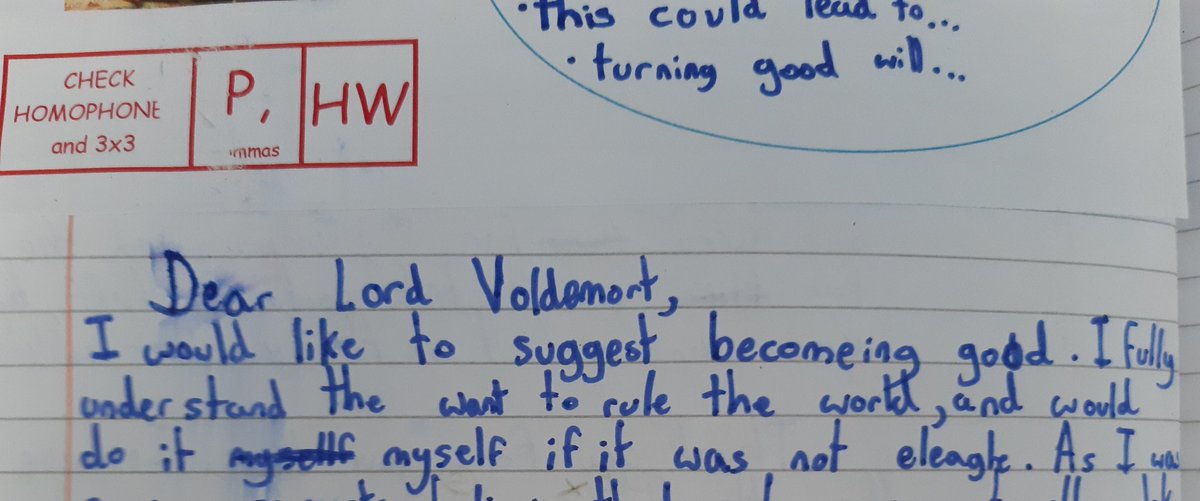 • this could lead to...
• turning good will...
CHECK
HOMOPHONE
and 3x3
P,
mmas
HW
Dear Lord Voldemort,
I would like to suggest becomeing good. I fully
understand the want to rule the world, and would
do it myself if it was not eleagle. As I was